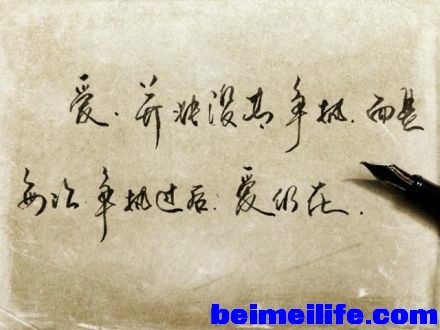 爱.并非没有争执.而是
每次争执过后.爱仍在.
beimeilife.com